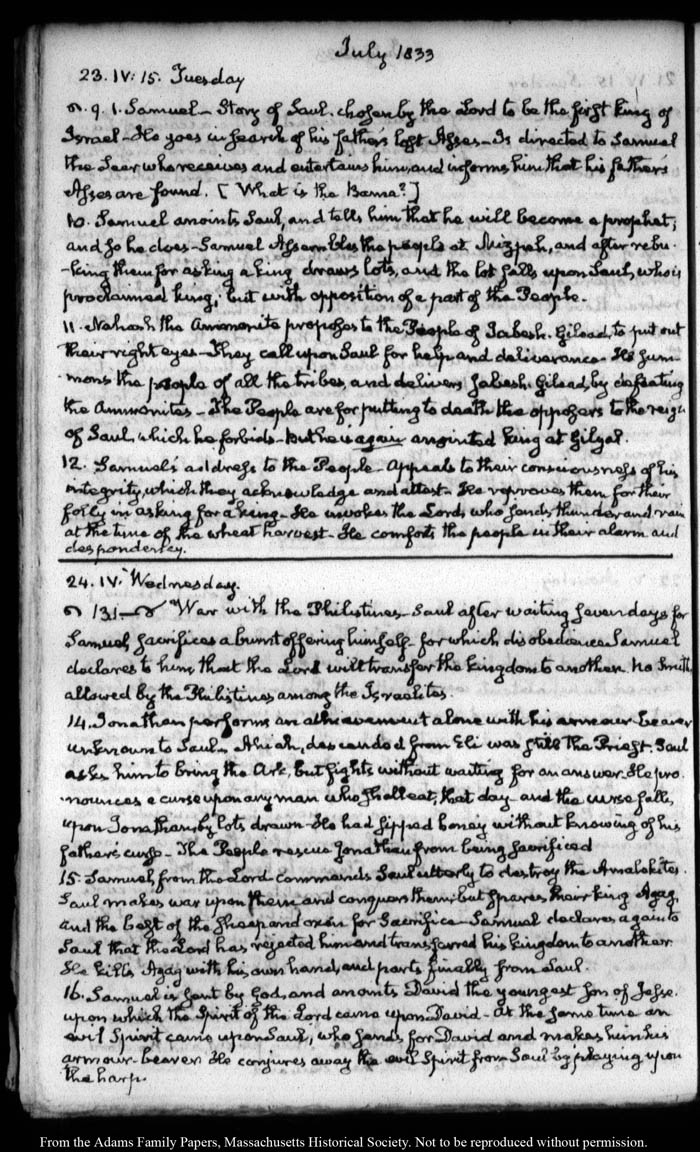 July 1833
23. IV: 15. Tuesday
9. 1. Samuel – Story of Saul. chosen by the Lord to be the first king of
Israel – He goes in search of his father's lost Asses – Is directed to Samuel
the Seer who receives and entertains him, and informs him that his father's
Asses are found. [What is the Bama?]
10. Samuel anoints Saul, and tells him that he will become a prophet;
and so he does – Samuel Assembles the people at Mizpah, and after rebu-
-king them for asking a king draws lots, and the lot falls upon Saul, who is
proclaimed king; but with opposition of a part of the People.
11. Nahash the Ammonite proposes to the People of Jabesh. Gilead, to put out
their right eyes – They call upon Saul for help and deliverance – He sum-
mons the people of all the tribes, and delivers Jabesh Gilead, by defeating
the Ammonites – The People are for putting to death the opposers to the reign
of Saul, which he forbids – but he is again anointed king at Gilgal.
12. Samuel's address to the People – Appeals to their consciousness of his
integrity, which they acknowledge and attest – He reproves them for their
folly in asking for a king – He invokes the Lord, who sends thunder and rain
at the time of the wheat harvest – He comforts the people in their alarm and
despondency.
24. IV. Wednesday.
13 War with the Philistines – Saul after waiting seven days for
Samuel, sacrifices a burnt offering himself – for which disobedience Samuel
declares to him that the Lord will transfer the kingdom to another. No Smith
allowed by the Philistines among the Israelites.
14. Jonathan performs an atchievement alone with his armour-bearer
unknown to Saul – Ahiah, descended from Eli was still the Priest. Saul
asks him to bring the Ark, but fights without waiting for an answer. He pro-
-nounces a curse upon any man who shall eat, that day – and the curse falls,
upon Jonathan by lots drawn – He had sipped honey without knowing of his
father's curse – The People rescue Jonathan from being sacrificed
15. Samuel, from the Lord commands Saul utterly to destroy the Amalekites.
Saul makes war upon them and conquers them; but spares their king Agag,
and the best of the sheep and oxen for Sacrifice – Samuel declares again to
Saul that the Lord has rejected him and transferred his kingdom to another
He kills Agag with his own hand, and parts finally from Saul.
16. Samuel is sent by God, and anoints David the youngest Son of Jesse.
upon which the Spirit of the Lord came upon David – At the same time an
evil Spirit came upon Saul, who sends for David and makes him his
armour-bearer He conjures away the evil Spirit from Saul by playing upon
the harp.
From the Adams Family Papers, Massachusetts Historical Society. Not to be reproduced without permission.